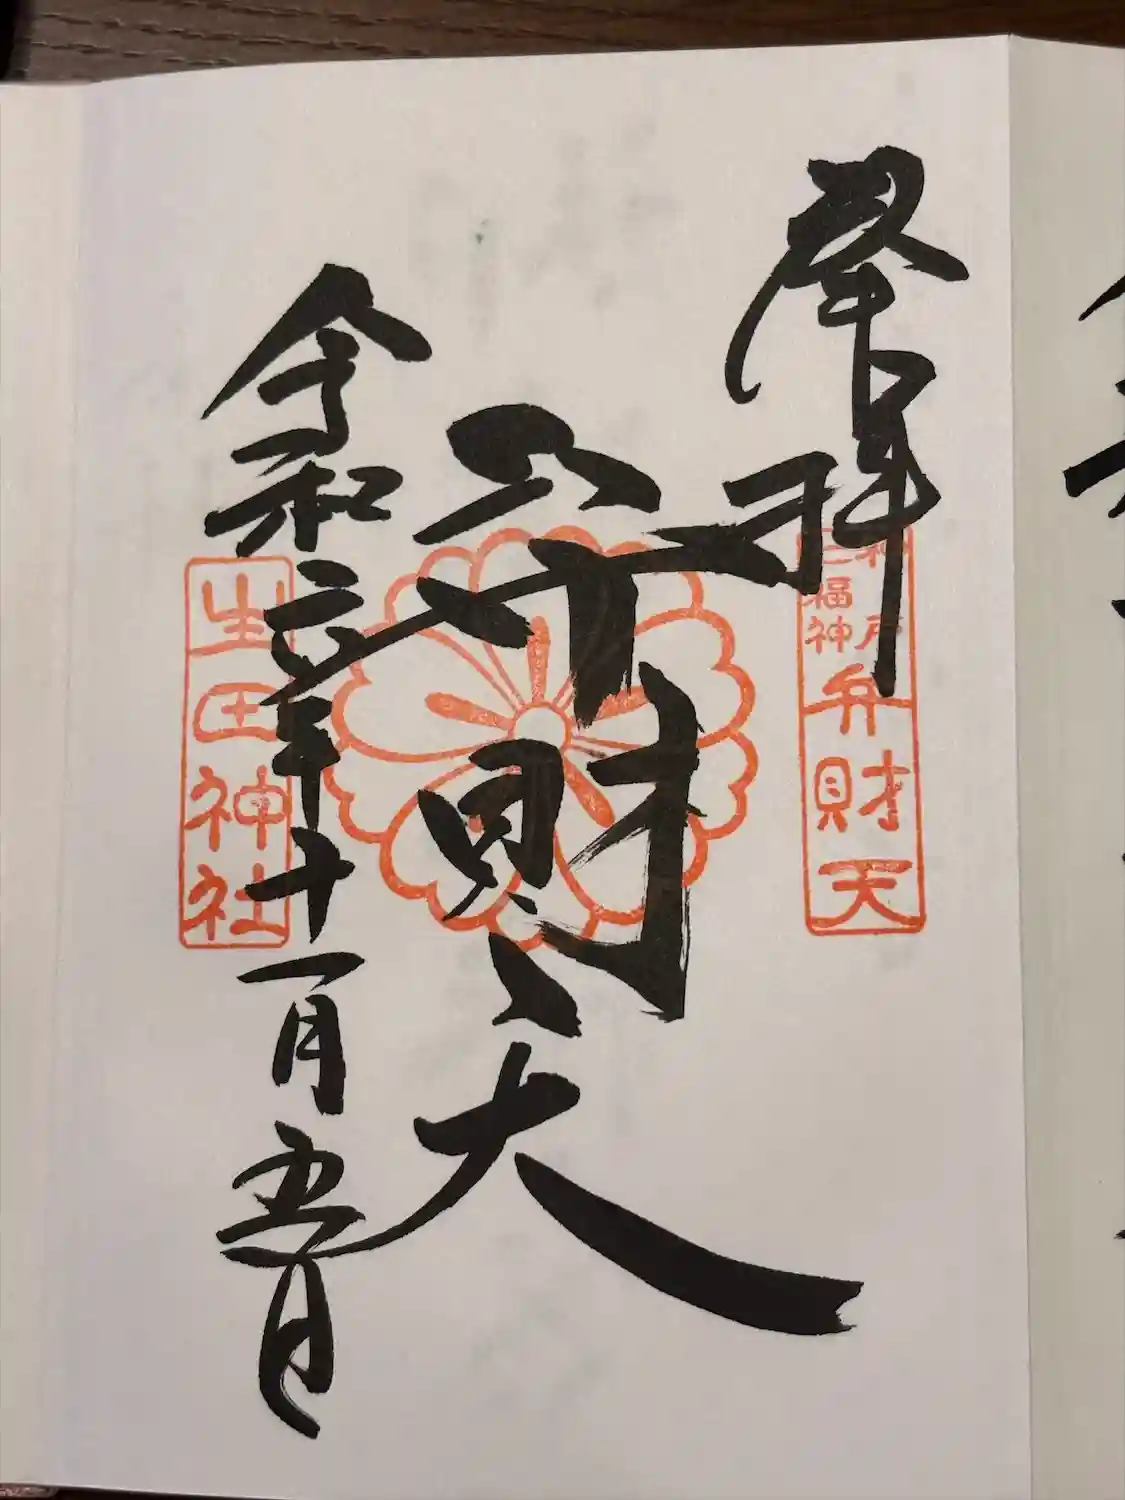 奉拝
神戸
七福神
弁財天
弁財天
令和六年十一月五日
生田神社